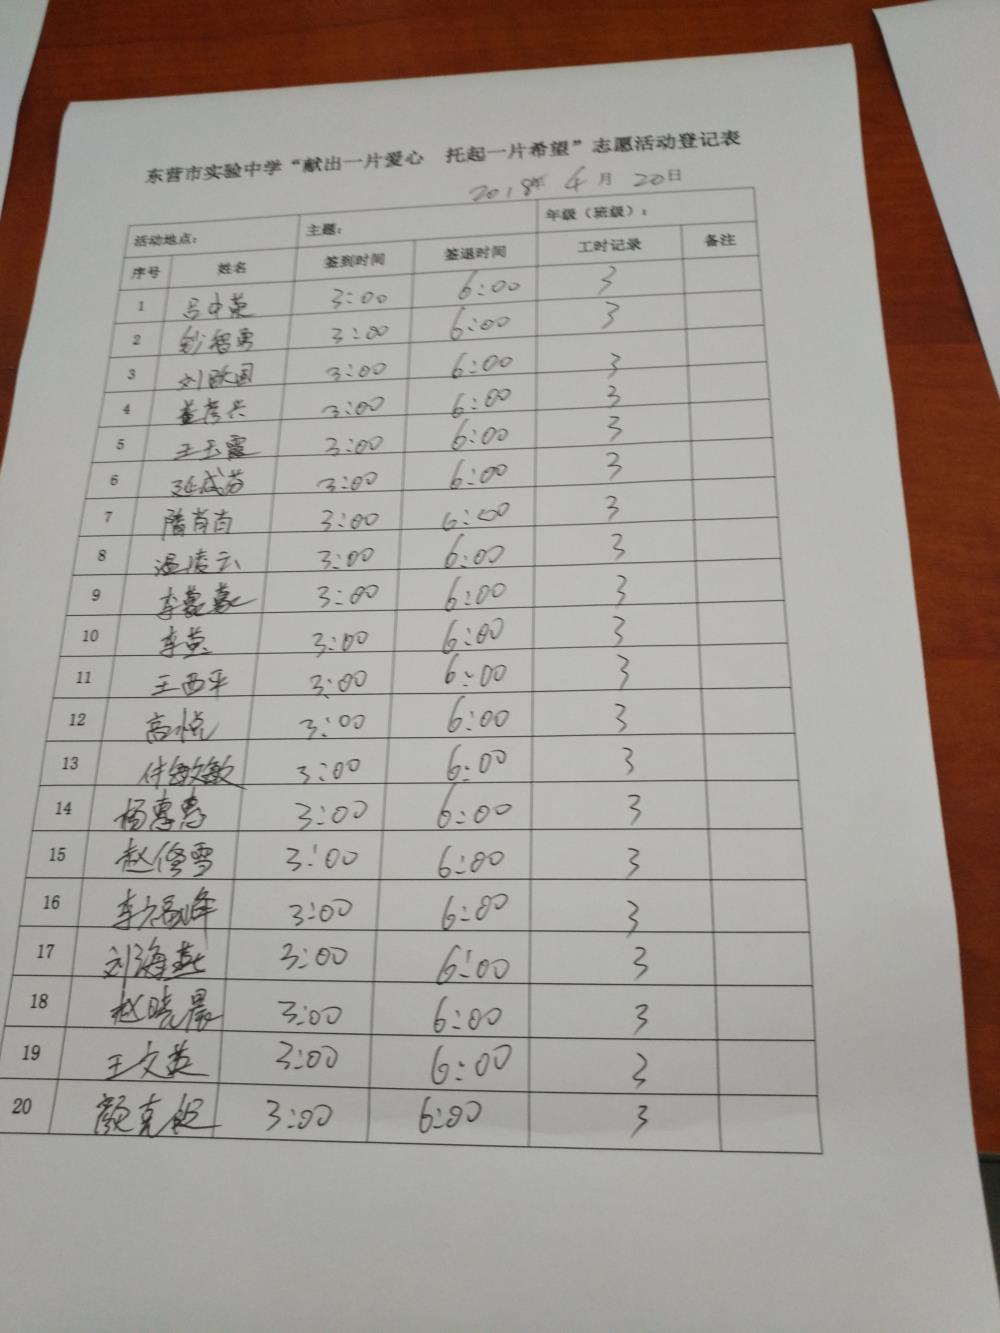 东营市实验中学“献出一片爱心 托起一片希望”志愿活动登记表
2018年 4月 20日
活动地点： 主题： 年级（班级）：
序号 姓名 签到时间 签退时间 工时记录 备注
1 马中英 3:00 6:00 3
2 智勇 3:00 6:00 3
3 刘 国 3:00 6:00 3
4 董彦兵 3:00 6:00 3
5 王玉霞 3:00 6:00 3
6 延成芬 3:00 6:00 3
7 隋肖肖 3:00 6:00 3
8 温凌云 3:00 6:00 3
9 李 3:00 6:00 3
10 李英 3:00 6:00 3
11 王西平 3:00 6:00 3
12 高悦 3:00 6:00 3
13 敏敏 3:00 6:00 3
14 杨惠惠 3:00 6:00 3
15 赵修雪 3:00 6:00 3
16 李 峰 3:00 6:00 3
17 刘海燕 3:00 6:00 3
18 赵晓晨 3:00 6:00 3
19 王文英 3:00 6:00 3
20 颜克 3:00 6:00 3